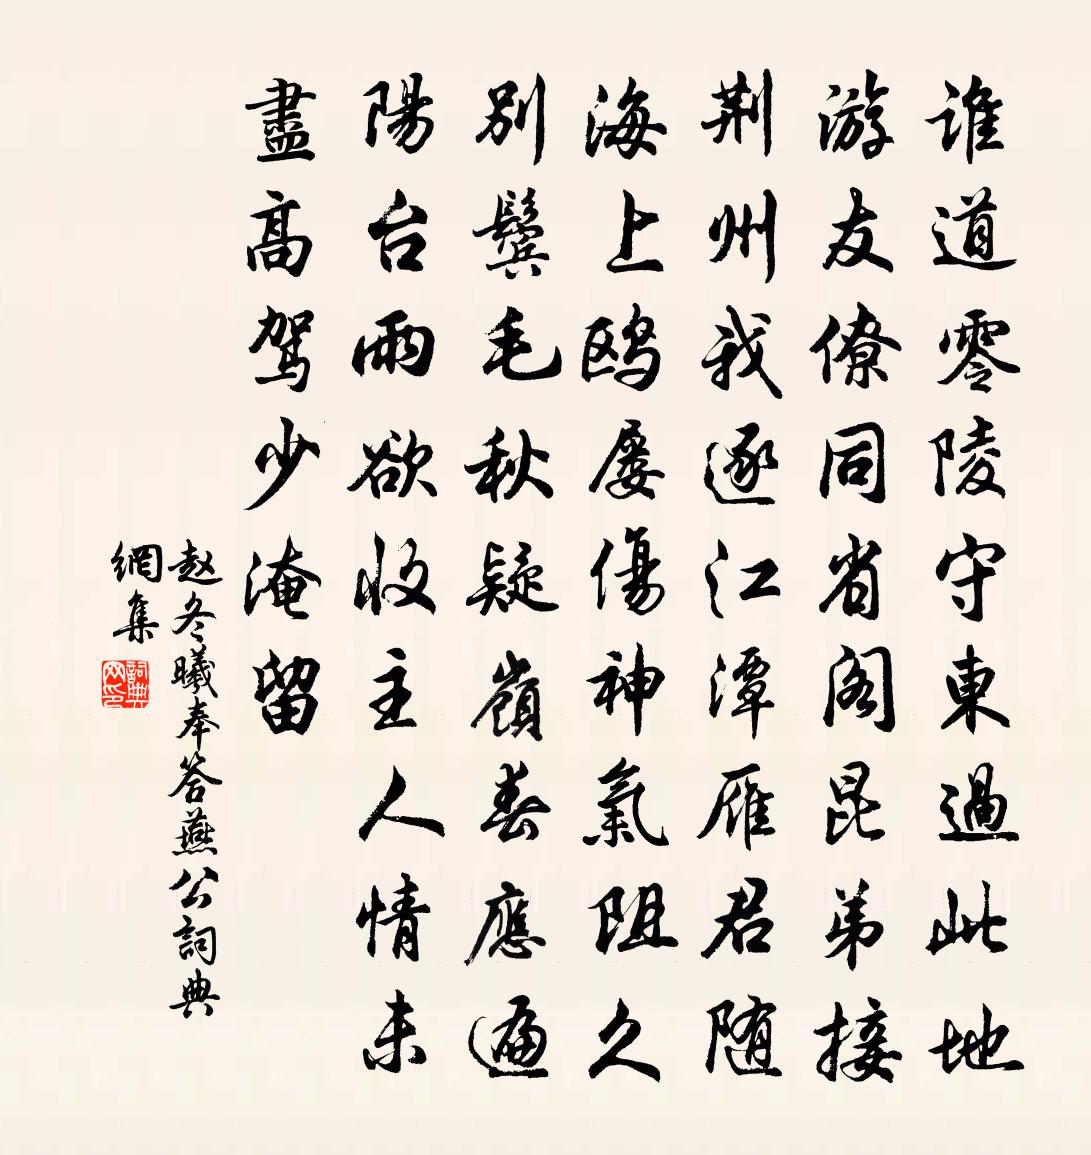 谁道零陵守東過此地
游友僚同省阁昆弟接
荆州我逐江潭雁君随
海上鸥屡傷神氣阻久
别鬓毛秋疑嶺春應遍
陽台雨欲收主人情未
盡高驾少淹留
赵冬曦奉答燕公詞典
網集
詞典
网印